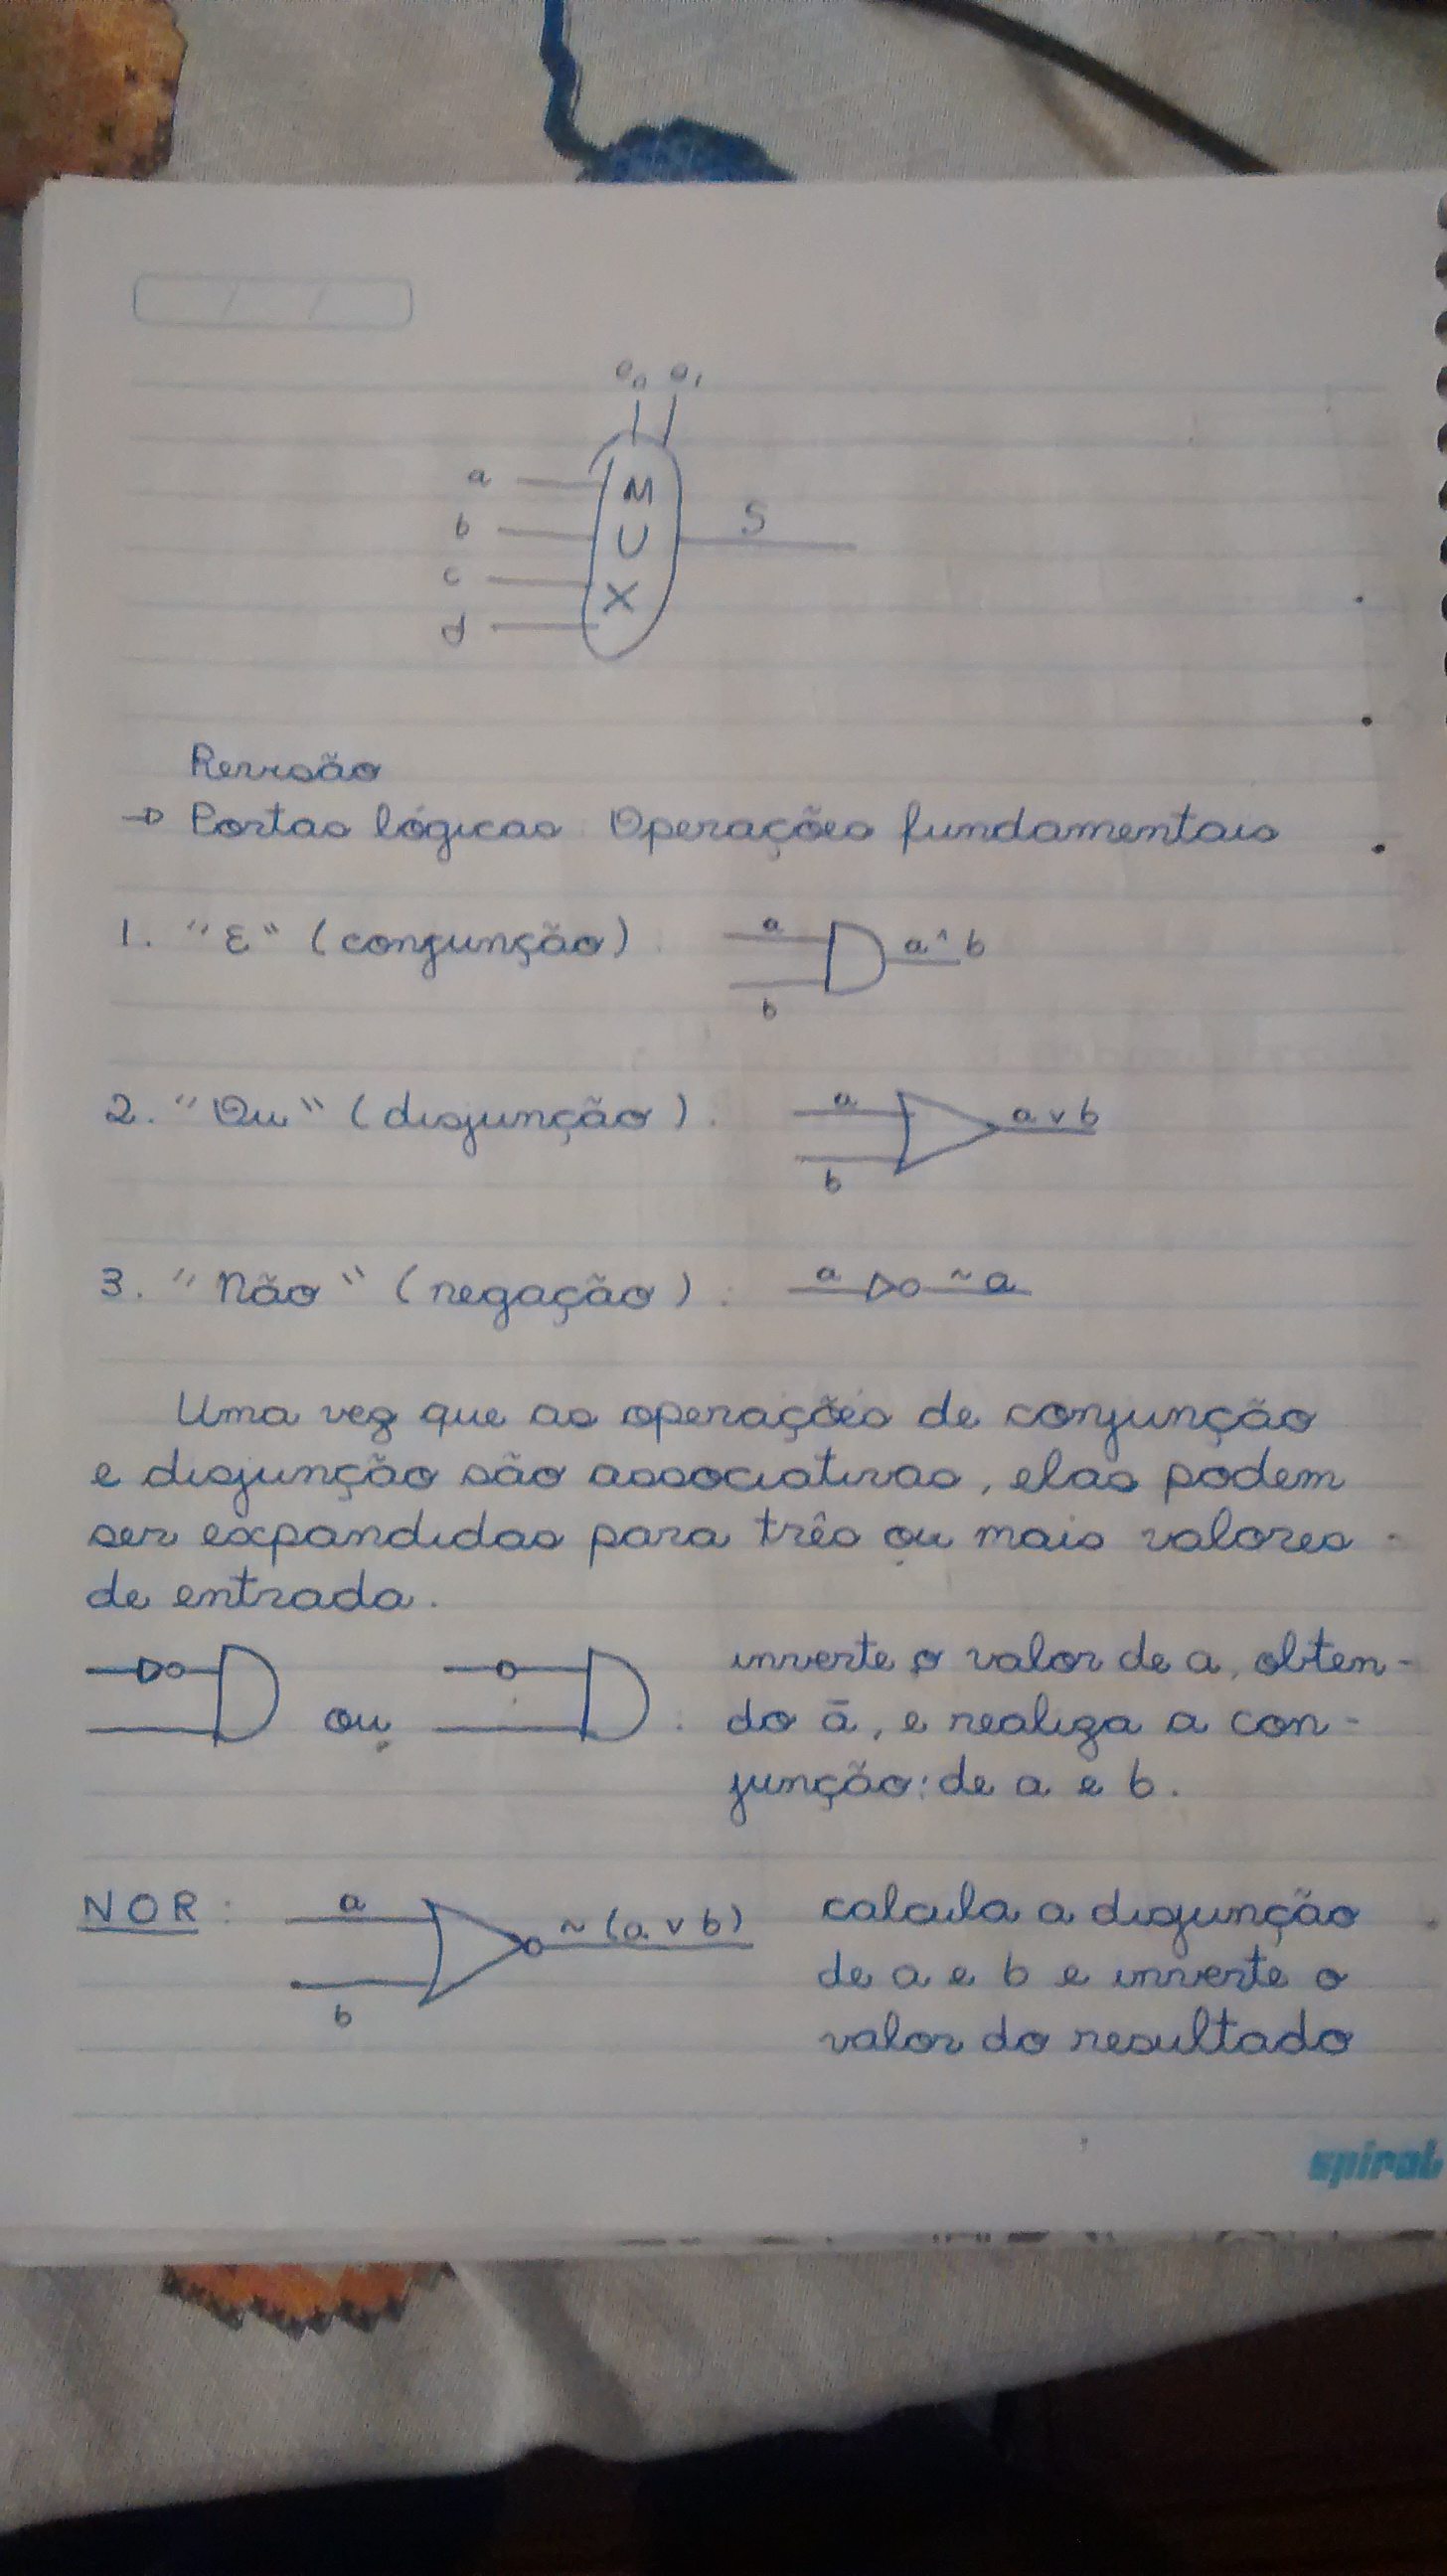 o₀ o₁
a
M
b
U
S
c
X
d
Revisão
→ Portas lógicas Operações fundamentais
1. "E" (conjunção) a b a ^ b
2. "Ou" (disjunção). a b a v b
3. "Não" (negação): a ~a
Uma vez que as operações de conjunção
e disjunção são associativas, elas podem
ser expandidas para três ou mais valores
de entrada.
ou : inverte o valor de a, obten-
do ā, e realiza a con-
junção: de a e b.
NOR: a b ~(a v b) calcula a disjunção
de a e b e inverte o
valor do resultado
spiral